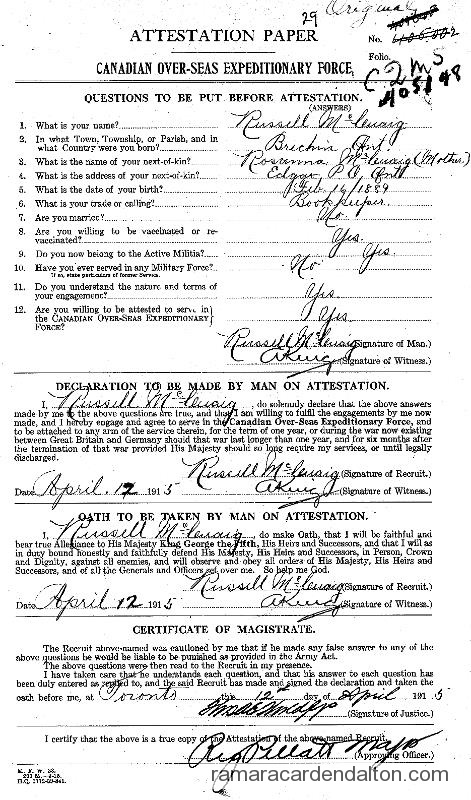 29 Original
ATTESTATION PAPER
No.
Folio.
CANADIAN OVER-SEAS EXPEDITIONARY FORCE.
C 2 MS
405148
QUESTIONS TO BE PUT BEFORE ATTESTATION.
(ANSWERS)
1. What is your name? Russell McCuaig
2. In what Town, Township, or Parish, and in
what Country were you born? Brechin Ont.
3. What is the name of your next-of-kin? Rosanna McCuaig (Mother)
4. What is the address of your next-of-kin? Edgar P.O. Ont
5. What is the date of your birth? Feb. 16/1889
6. What is your trade or calling? Bookkeeper.
7. Are you married? No
8. Are you willing to be vaccinated or re-
vaccinated? Yes.
9. Do you now belong to the Active Militia? Yes.
10. Have you ever served in any Military Force? No
If so, state particulars of former Service.
11. Do you understand the nature and terms of
your engagement? Yes
12. Are you willing to be attested to serve in the
CANADIAN OVER-SEAS EXPEDITIONARY
FORCE? Yes.
Russell McCuaig (Signature of Man.)
(Signature of Witness.)
DECLARATION TO BE MADE BY MAN ON ATTESTATION.
I, Russell McCuaig, do solemnly declare that the above answers
made by me to the above questions are true, and that I am willing to fulfil the engagements by me now
made, and I hereby engage and agree to serve in the Canadian Over-Seas Expeditionary Force, and
to be attached to any arm of the service therein, for the term of one year, or during the war now existing
between Great Britain and Germany should that war last longer than one year, and for six months after
the termination of that war provided His Majesty should so long require my services, or until legally
discharged.
Russell McCuaig (Signature of Recruit.)
Date April 12 1915 (Signature of Witness.)
OATH TO BE TAKEN BY MAN ON ATTESTATION.
I, Russell McCuaig, do make Oath, that I will be faithful and
bear true Allegiance to His Majesty King George the Fifth, His Heirs and Successors, and that I will as
in duty bound honestly and faithfully defend His Majesty, His Heirs and Successors, in Person, Crown
and Dignity, against all enemies, and will observe and obey all orders of His Majesty, His Heirs and
Successors, and of all the Generals and Officers set over me. So help me God.
Russell McCuaig (Signature of Recruit.)
Date April 12 1915 (Signature of Witness.)
CERTIFICATE OF MAGISTRATE.
The Recruit above-named was cautioned by me that if he made any false answer to any of the
above questions he would be liable to be punished as provided in the Army Act.
The above questions were then read to the Recruit in my presence.
I have taken care that he understands each question, and that his answer to each question has
been duly entered as replied to, and the said Recruit has made and signed the declaration and taken the
oath before me, at Toronto this 12th day of April 1915
(Signature of Justice.)
I certify that the above is a true copy of the Attestation of the above-named Recruit.
Reg Pellatt Major
(Approving Officer.)
M. F. W. 23.
ramaracardendalton.com